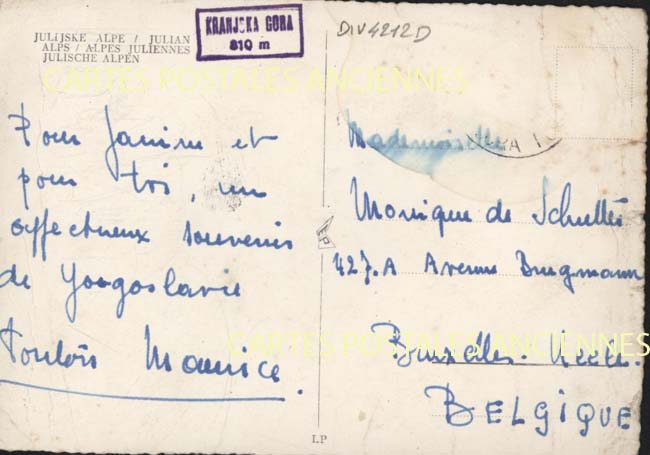 JULIJSKE ALPE / JULIAN
ALPS / ALPES JULIENNES
JULISCHE ALPEN
KRANJSKA GORA
810 m
DIV4212D
CARTES POSTALES ANCIENNES
Pour Janine et
pour toi, un
affectueux souvenir
de Yougoslavie
Maurice.
Mademoiselle
Monique de
427.A Avenue Brugmann
Bruxelles. Uccle.
BELGIQUE
CARTES POSTALES ANCIENNES
LP